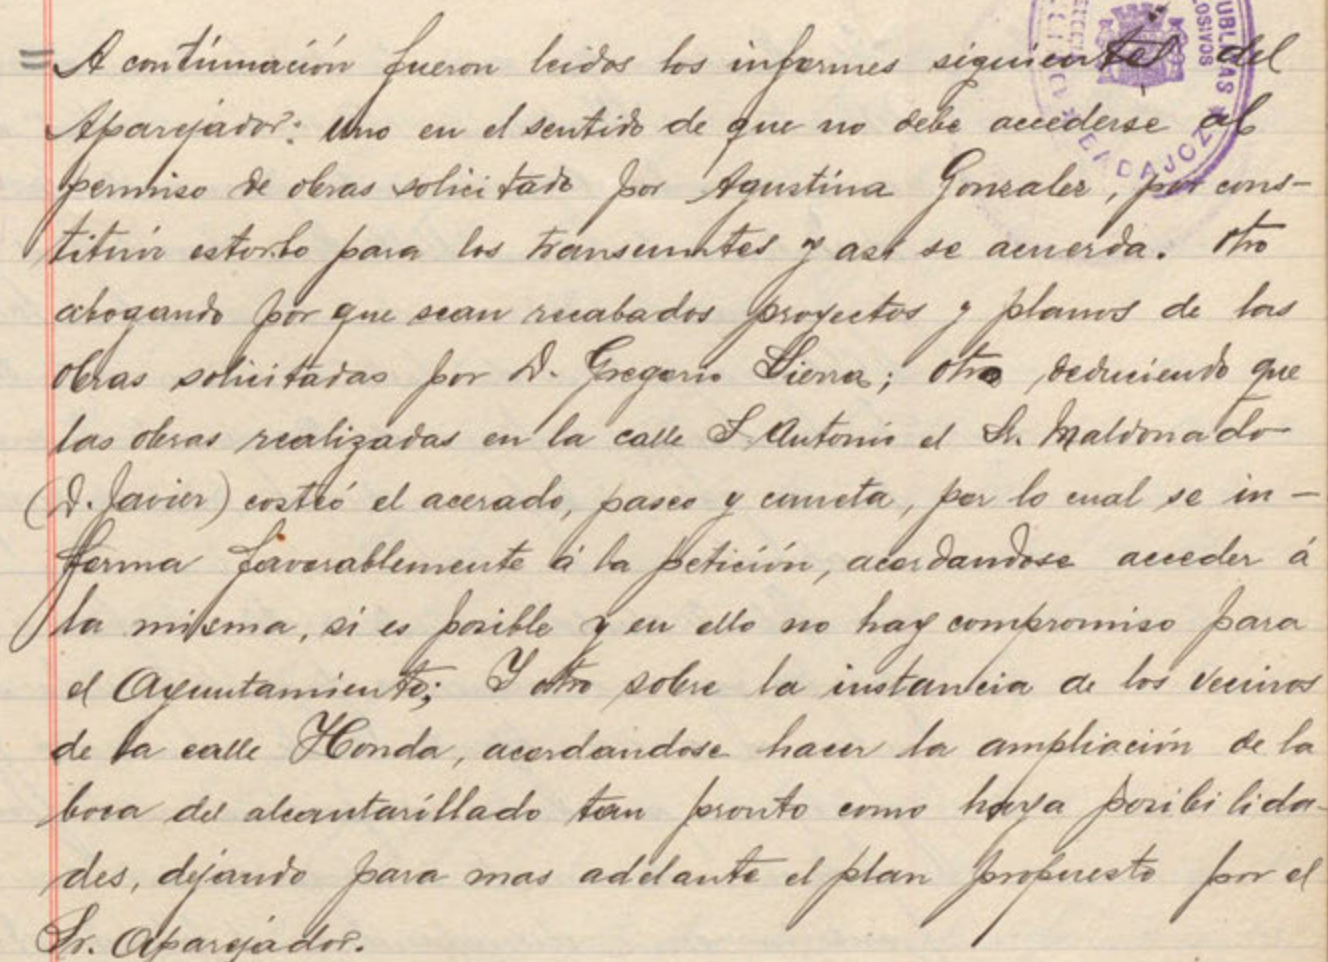 = A continuación fueron leidos los informes siguientes del
Aparejador: uno en el sentido de que no debe accederse al
permiso de obras solicitado por Agustina Gonzalez, por cons-
tituir estorbo para los transeuntes y asi se acuerda. Otro
abogando por que sean recabados proyectos y planos de las
obras solicitadas por D. Gregorio Sierra; otro deduciendo que
las obras realizadas en la calle S. Antonio el Sr. Maldonado
(D. Javier) costeó el acerado, paseo y cuneta, por lo cual se in-
forma favorablemente á la petición, acordandose acceder á
la misma, si es posible y en ello no hay compromiso para
el Ayuntamiento; Y otro sobre la instancia de los vecinos
de la calle Honda, acordandose hacer la ampliación de la
boca del alcantarillado tan pronto como haya posibilida-
des, dejando para mas adelante el plan propuesto por el
Sr. Aparejador.
UBLICAS
LOSIVOS
BADAJOZ